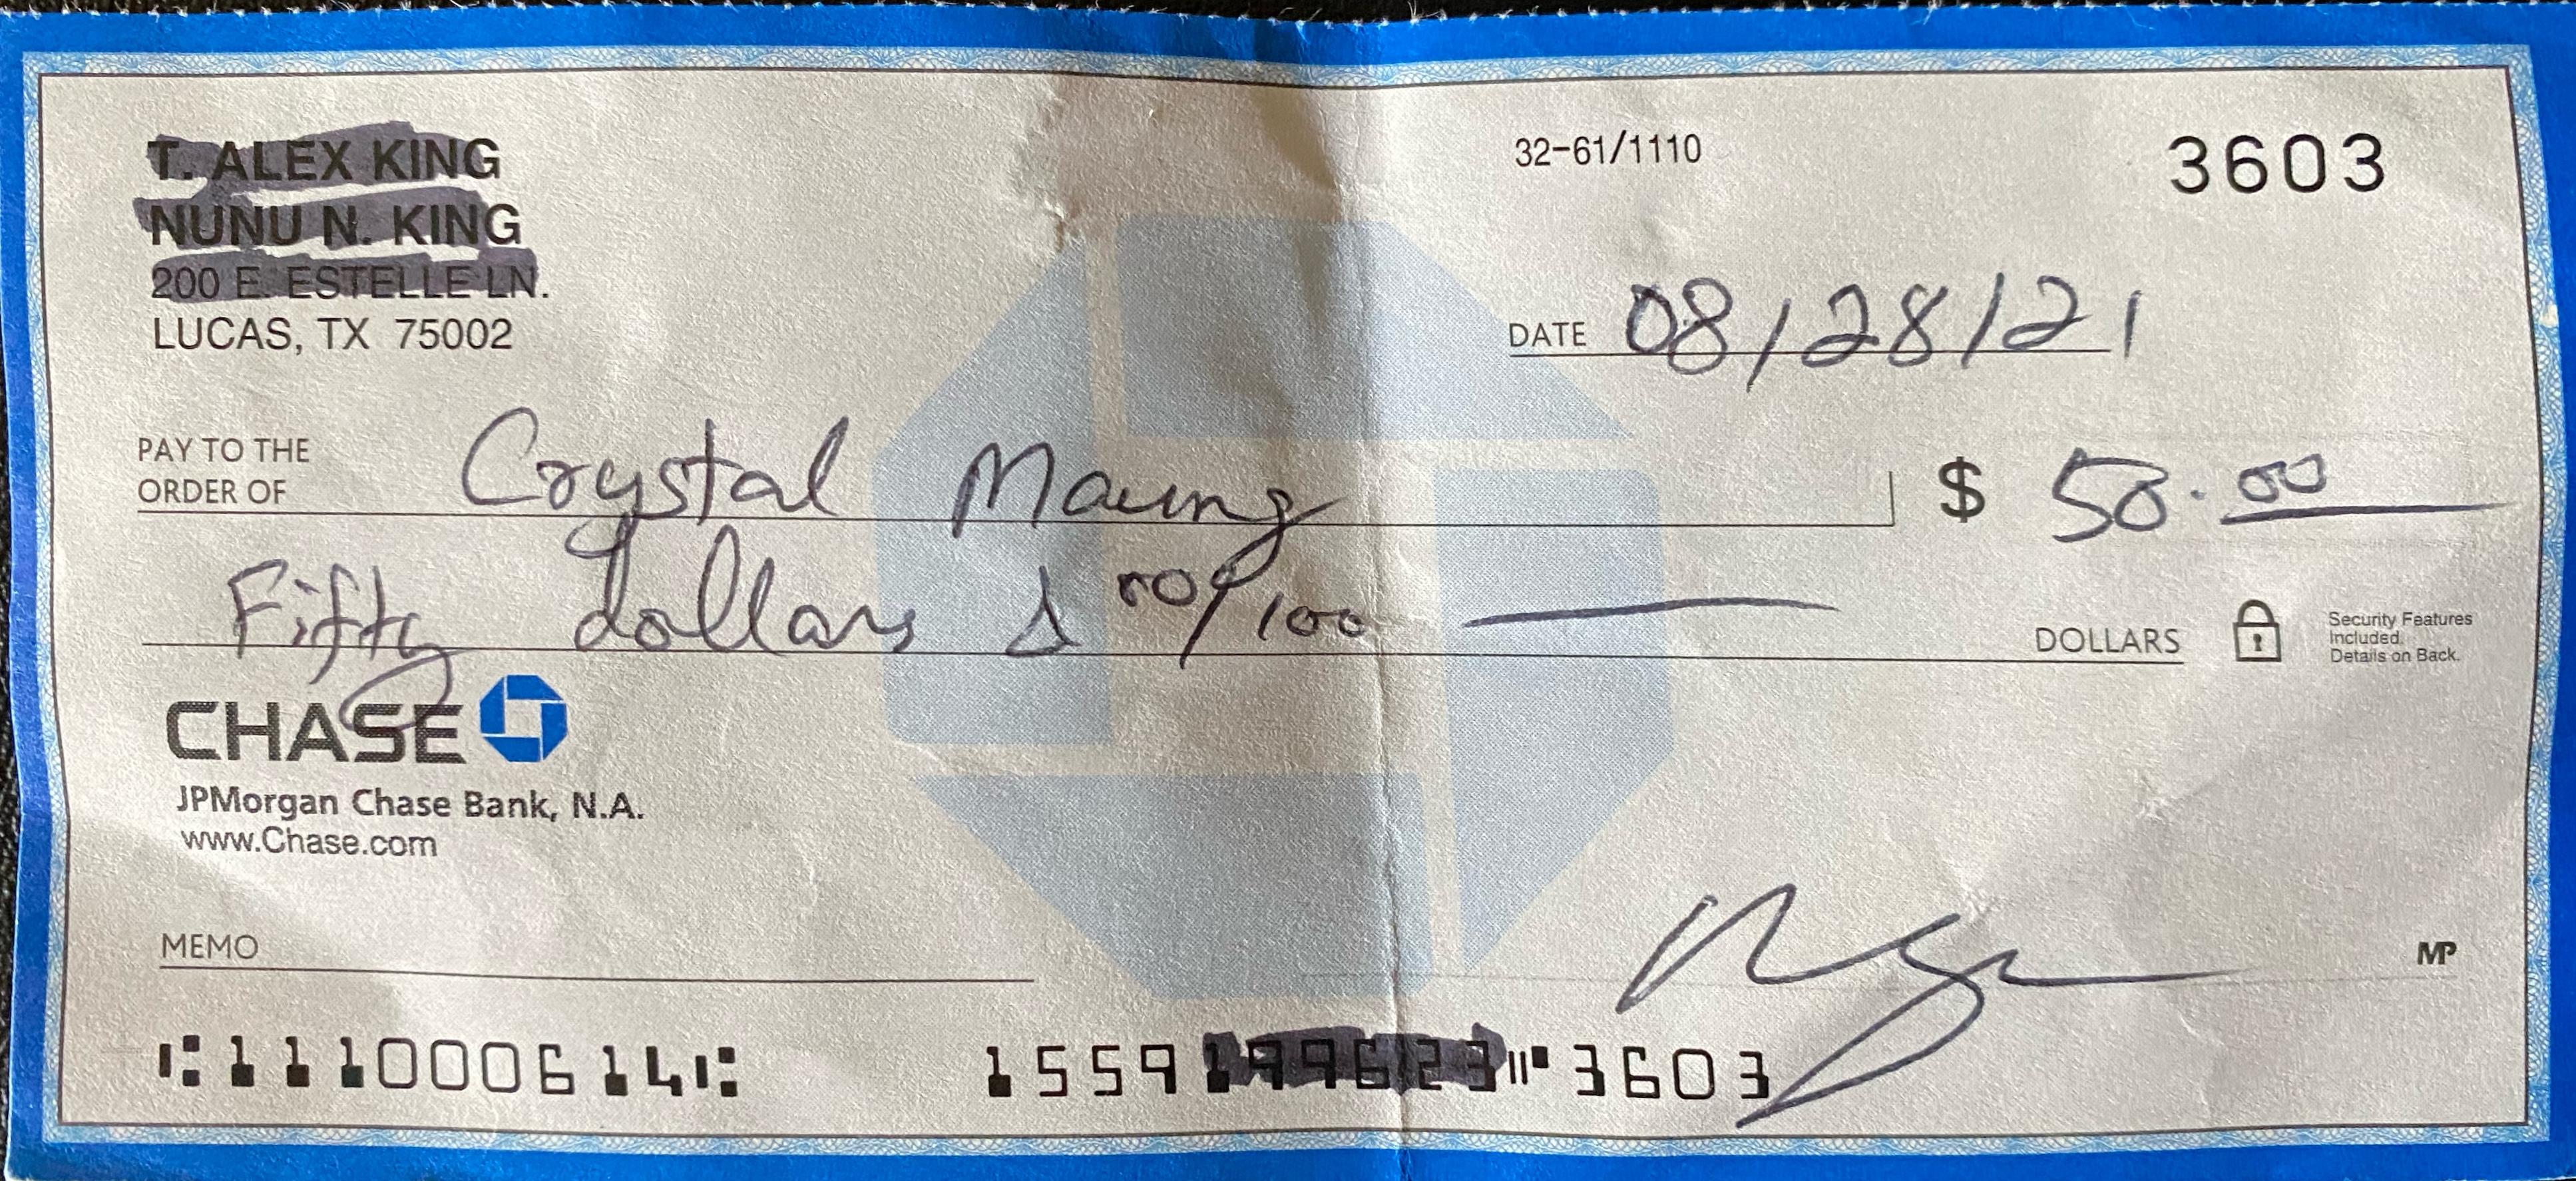 32-61/1110
3603
LUCAS, TX 75002
DATE 08/28/21
PAY TO THE
ORDER OF Crystal Maung $ 50.00
Fifty dollars & 00/100 DOLLARS
Security Features
Included.
Details on Back.
CHASE
JPMorgan Chase Bank, N.A.
www.Chase.com
MEMO
MP
111000614 1559 3603